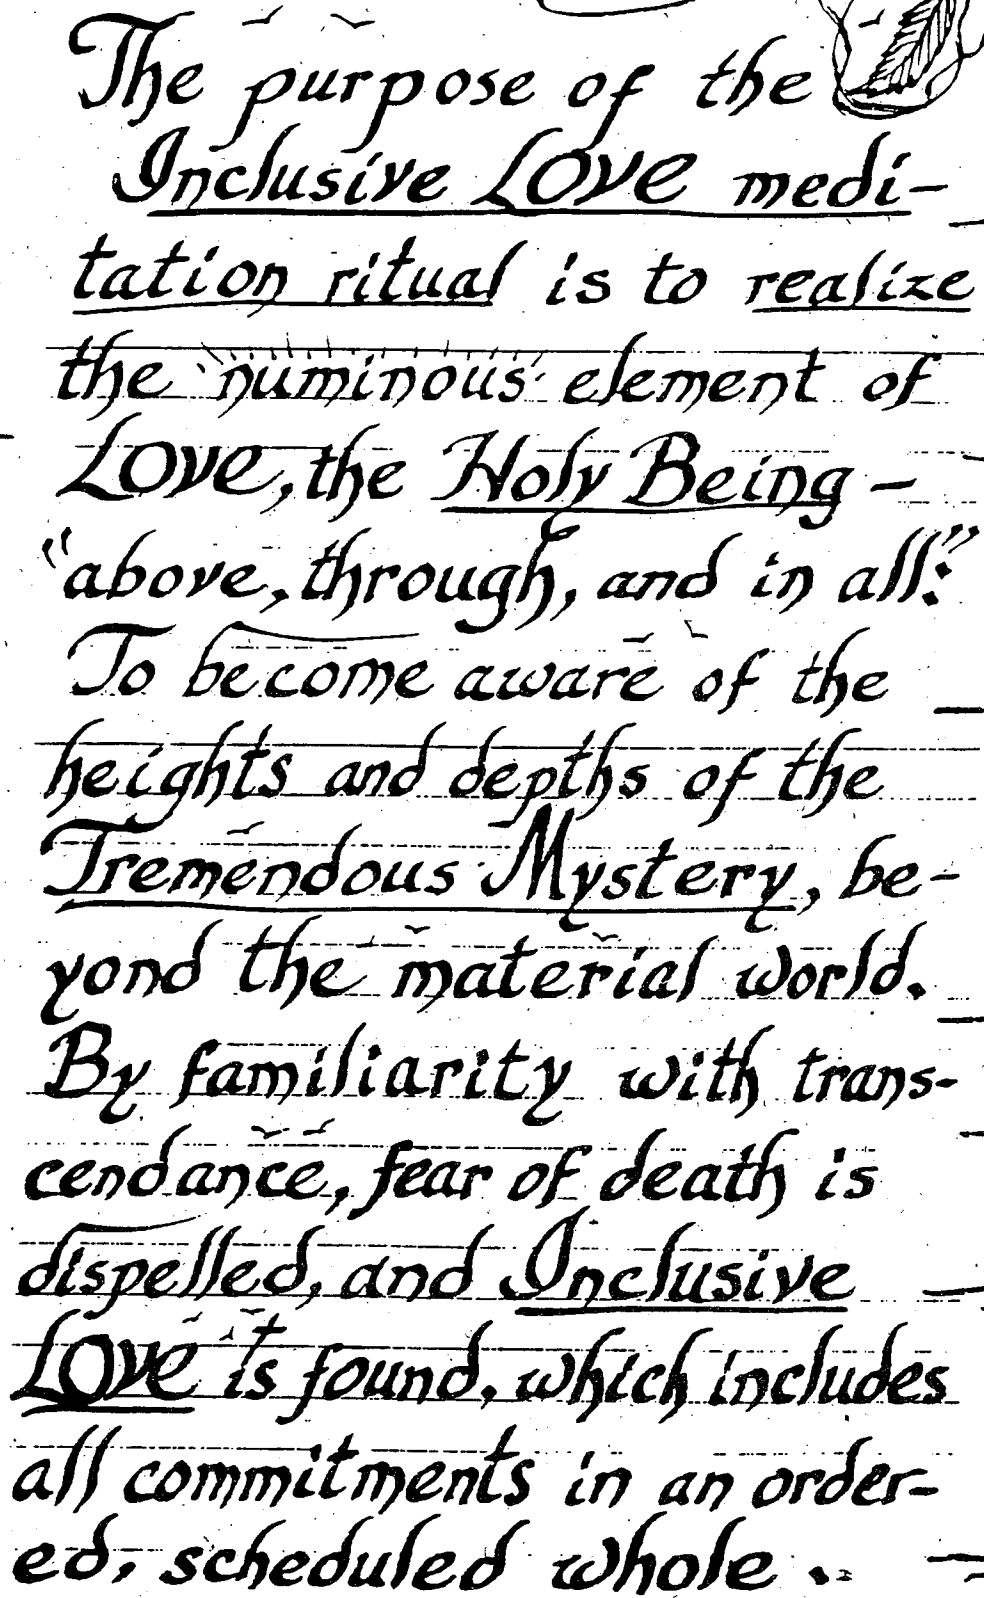 The purpose of the
Inclusive Love medi-
tation ritual is to realize
the "numinous" element of
Love, the Holy Being –
"above, through, and in all":
To become aware of the
heights and depths of the
Tremendous Mystery, be-
yond the material world.
By familiarity with trans-
cendance, fear of death is
dispelled, and Inclusive
Love is found, which includes
all commitments in an order-
ed, scheduled whole ..